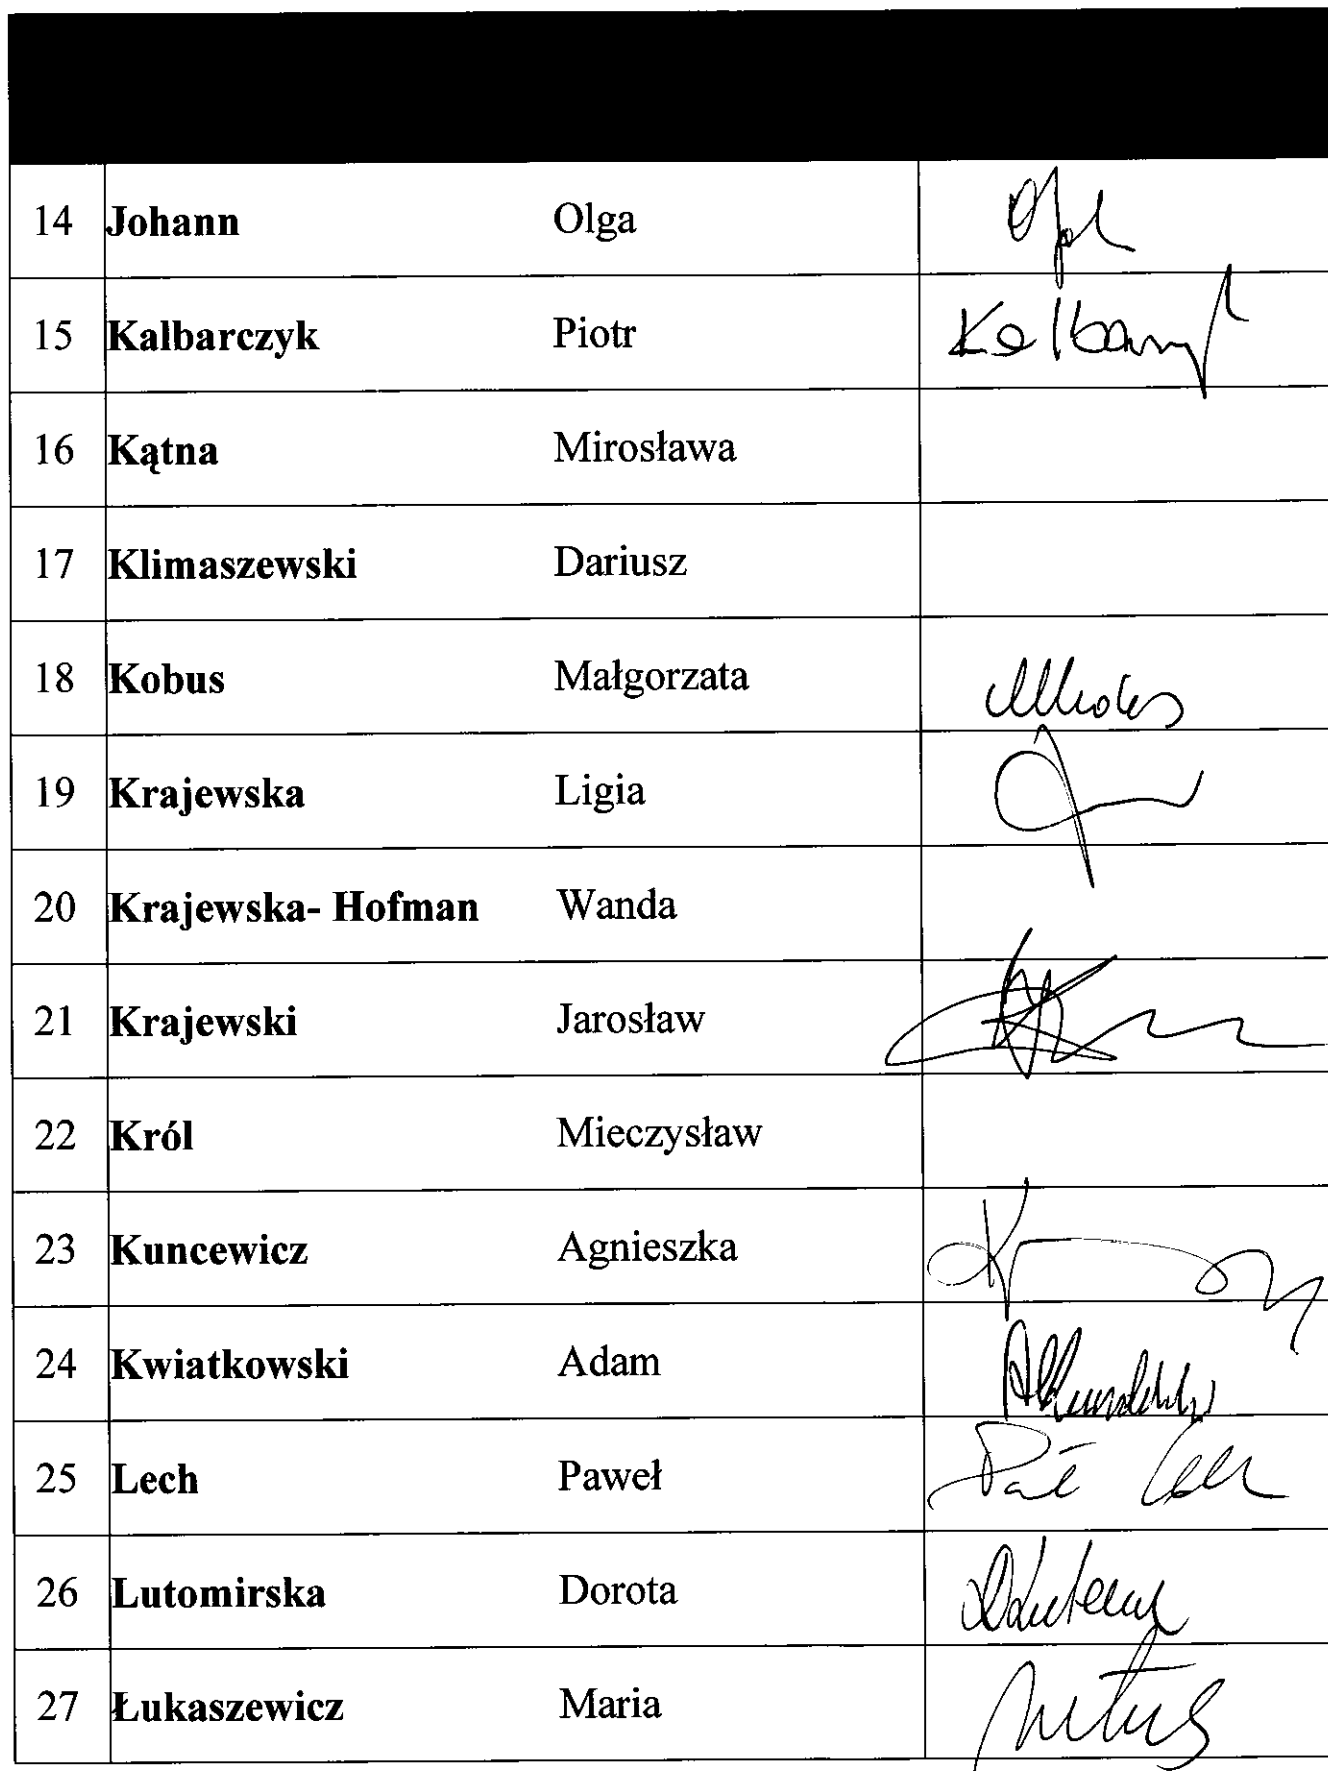 14 Johann Olga
15 Kalbarczyk Piotr
16 Kątna Mirosława
17 Klimaszewski Dariusz
18 Kobus Małgorzata
19 Krajewska Ligia
20 Krajewska- Hofman Wanda
21 Krajewski Jarosław
22 Król Mieczysław
23 Kuncewicz Agnieszka
24 Kwiatkowski Adam
25 Lech Paweł
26 Lutomirska Dorota
27 Łukaszewicz Maria